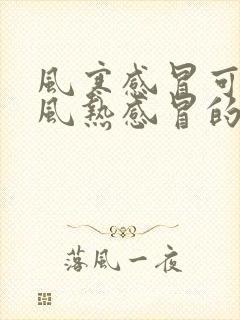 風寒感冒可
風熱感冒的
落風一夜